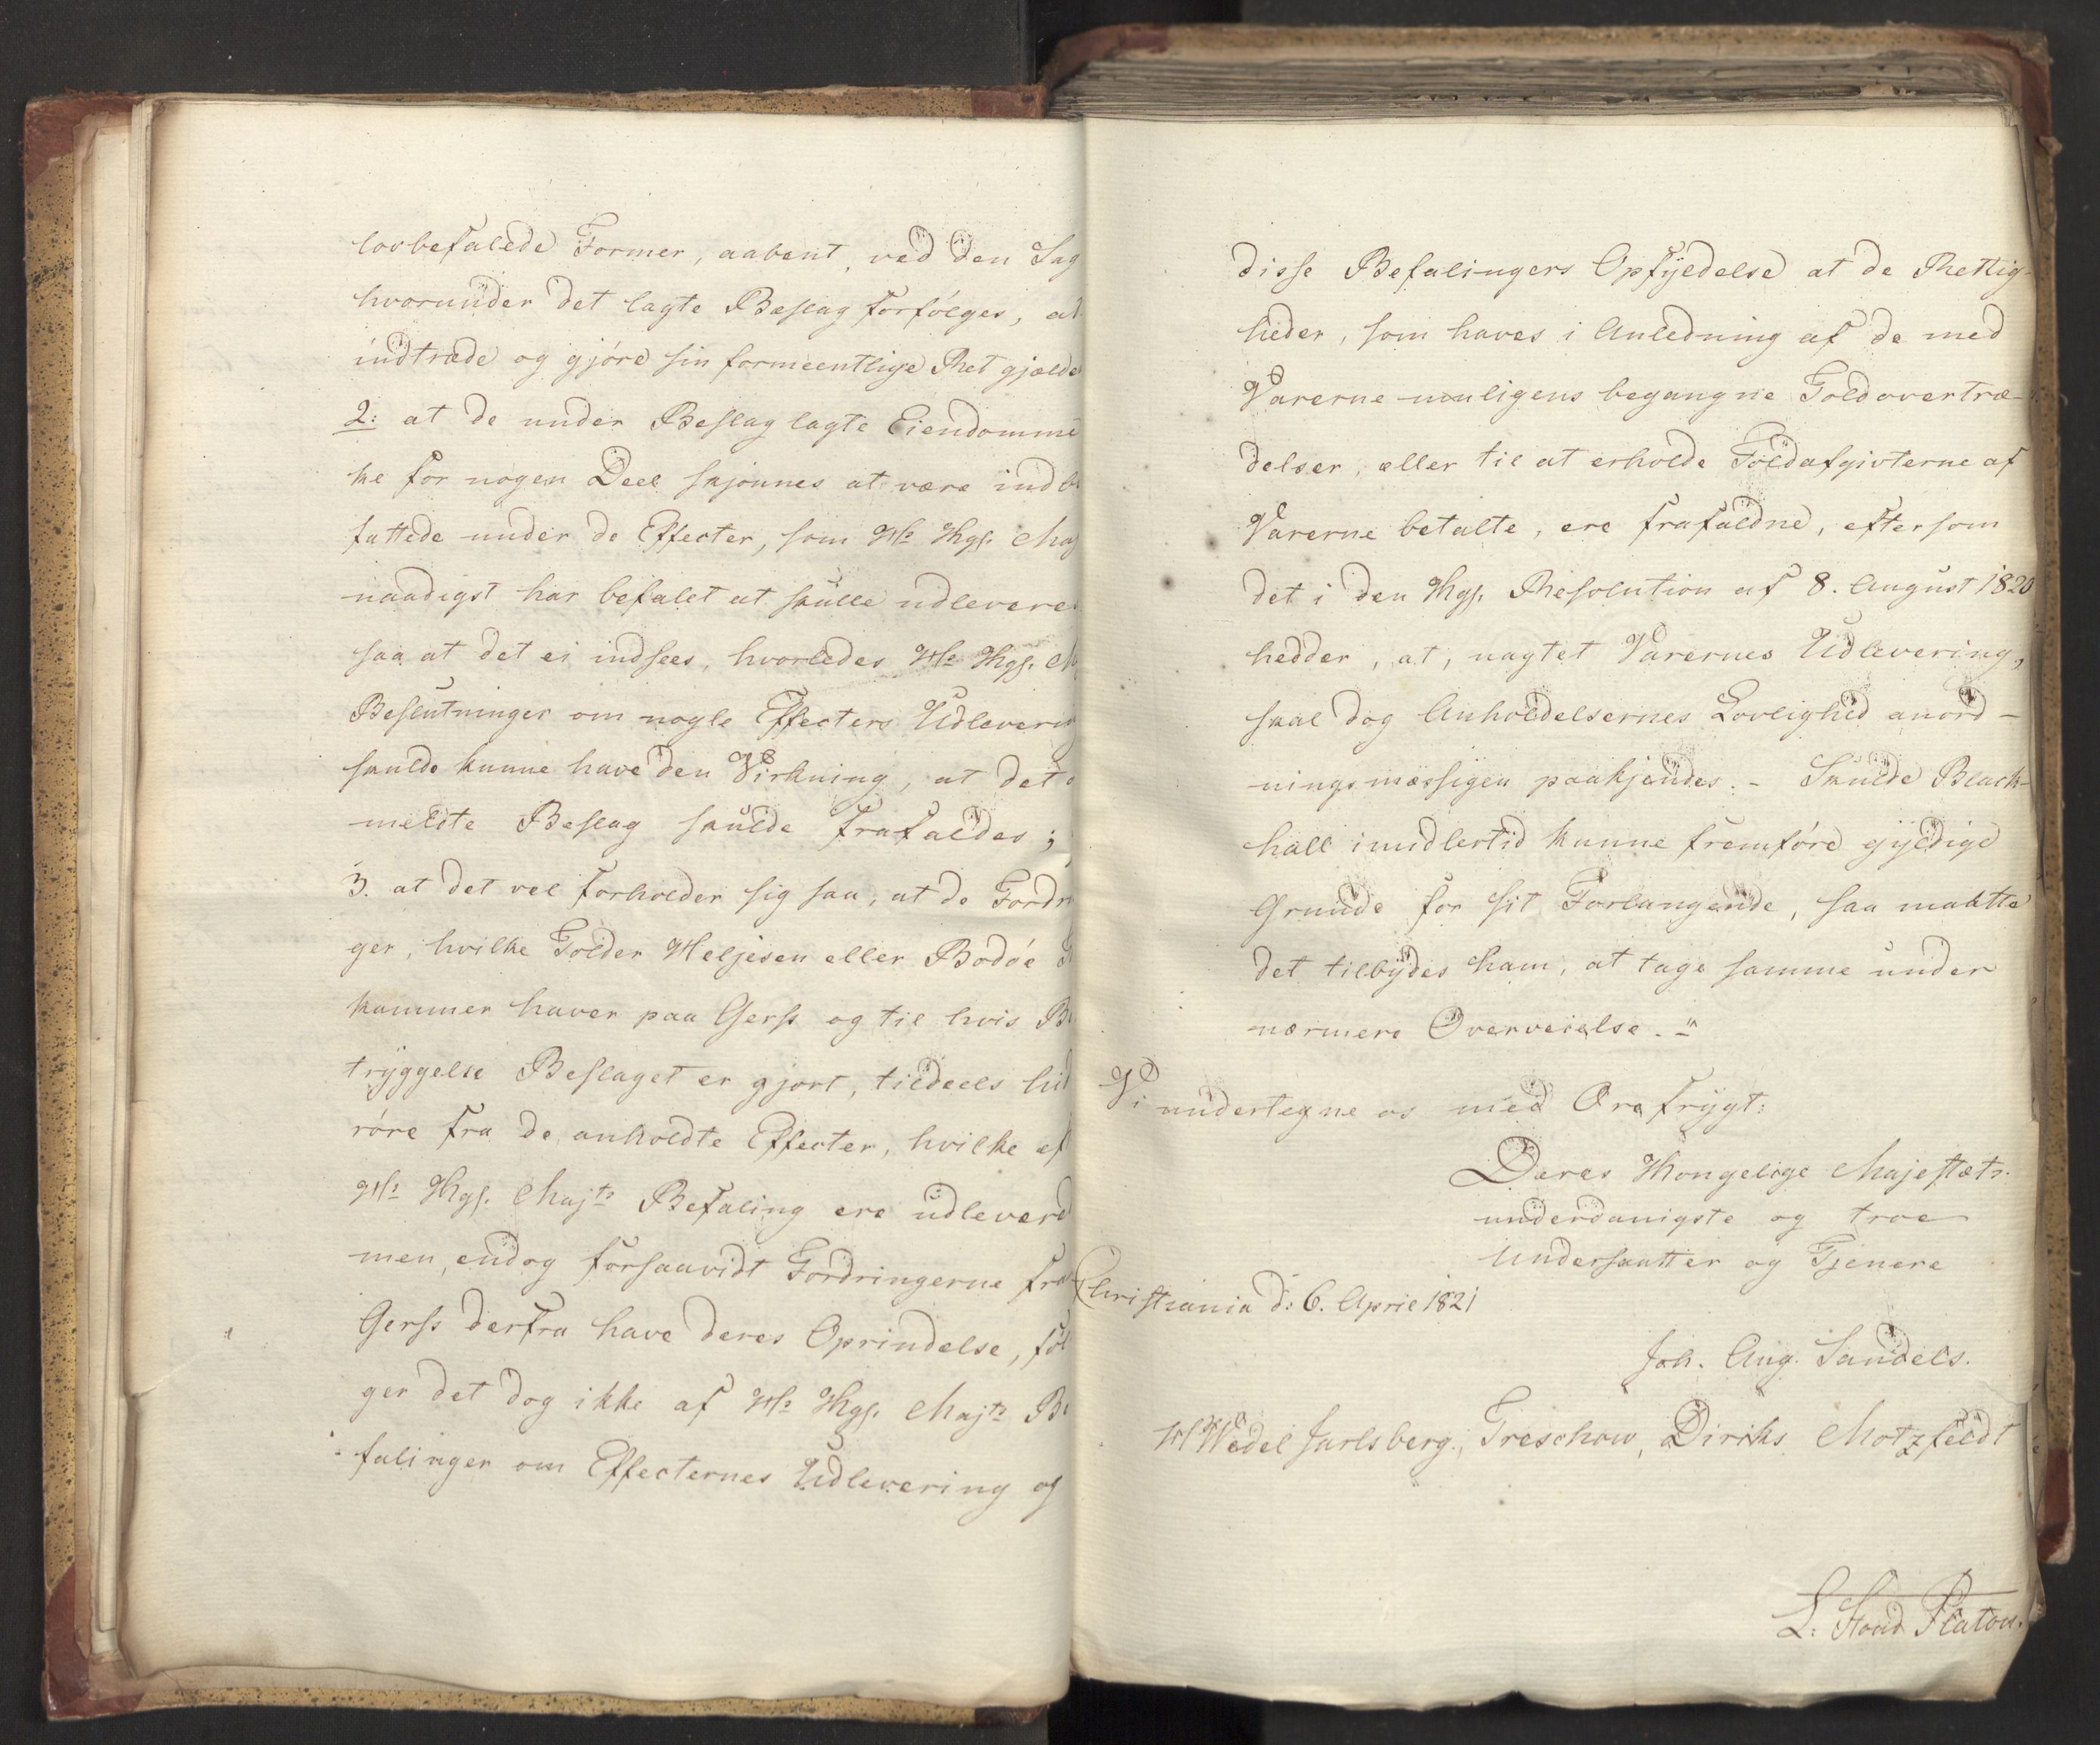 lovbefalede Former, aabent, ved den Sag
hvorunder det lagte Beslag forfølges, at
indtræde og gjøre sin formeentlige Ret gjælde
2: at de under Beslag lagte Eiendomme
ke for nogen Deel skjønnes at være indbe
fattede under de Effecter, som Hs Kgs. Maj
naadigst har befalet at skulle udleveres
saa at det ei indsees, hvorledes Hs Kgs. M
Beslutninger om nogle Effecters Udlevering
skulde kunne have den Virkning, at det o
meldte Beslag skulde frafaldes;
3. at det vel forholder sig saa, at de Fordrin
ger, hvilke Tolder Heljesen eller Bodøe T
kammer haver paa Gerss og til hvis Be
tryggelse Beslaget er gjort, tildeels hid
røre fra de anholdte Effecter, hvilke ef
Hs Kgs. Majts Befaling ere udlevered
men, endog forsaavidt Fordringerne fra
Gerss derfra have deres Oprindelse, føl
ger det dog ikke af Hs Kgs. Majts Be
falinger om Effecternes Udlevering og
disse Befalingers Opfyldelse at de Rettig-
heder, som haves i Anledning af de med
Varerne muligens begangne Toldovertræ-
delser, eller til at erholde Toldafgivterne af
Varerne betalte, ere frafaldne, eftersom
det i den Kgs. Resolution af 8. August 1820
hedder, at, uagtet Varernes Udlevering,
skal dog Anholdelsernes Lovlighed anord-
ningsmæssigen paakjendes. - Skulde Black-
hall imidlertid kunne fremføre gyldige
Grunde for sit Forlangende, saa maatte
det tilbydes ham, at tage samme under
nærmere Overveielse."
Vi undertegne os med Ærefrygt:
Deres Kongelige Majestæts
underdanigste og troe
Undersaatter og Tjenere
Christiania d: 6. April 1821
Joh. Aug. Sandels.
H Wedel Jarlsberg, Treschow, Diriks Motzfeldt
L: Stoud Platou.